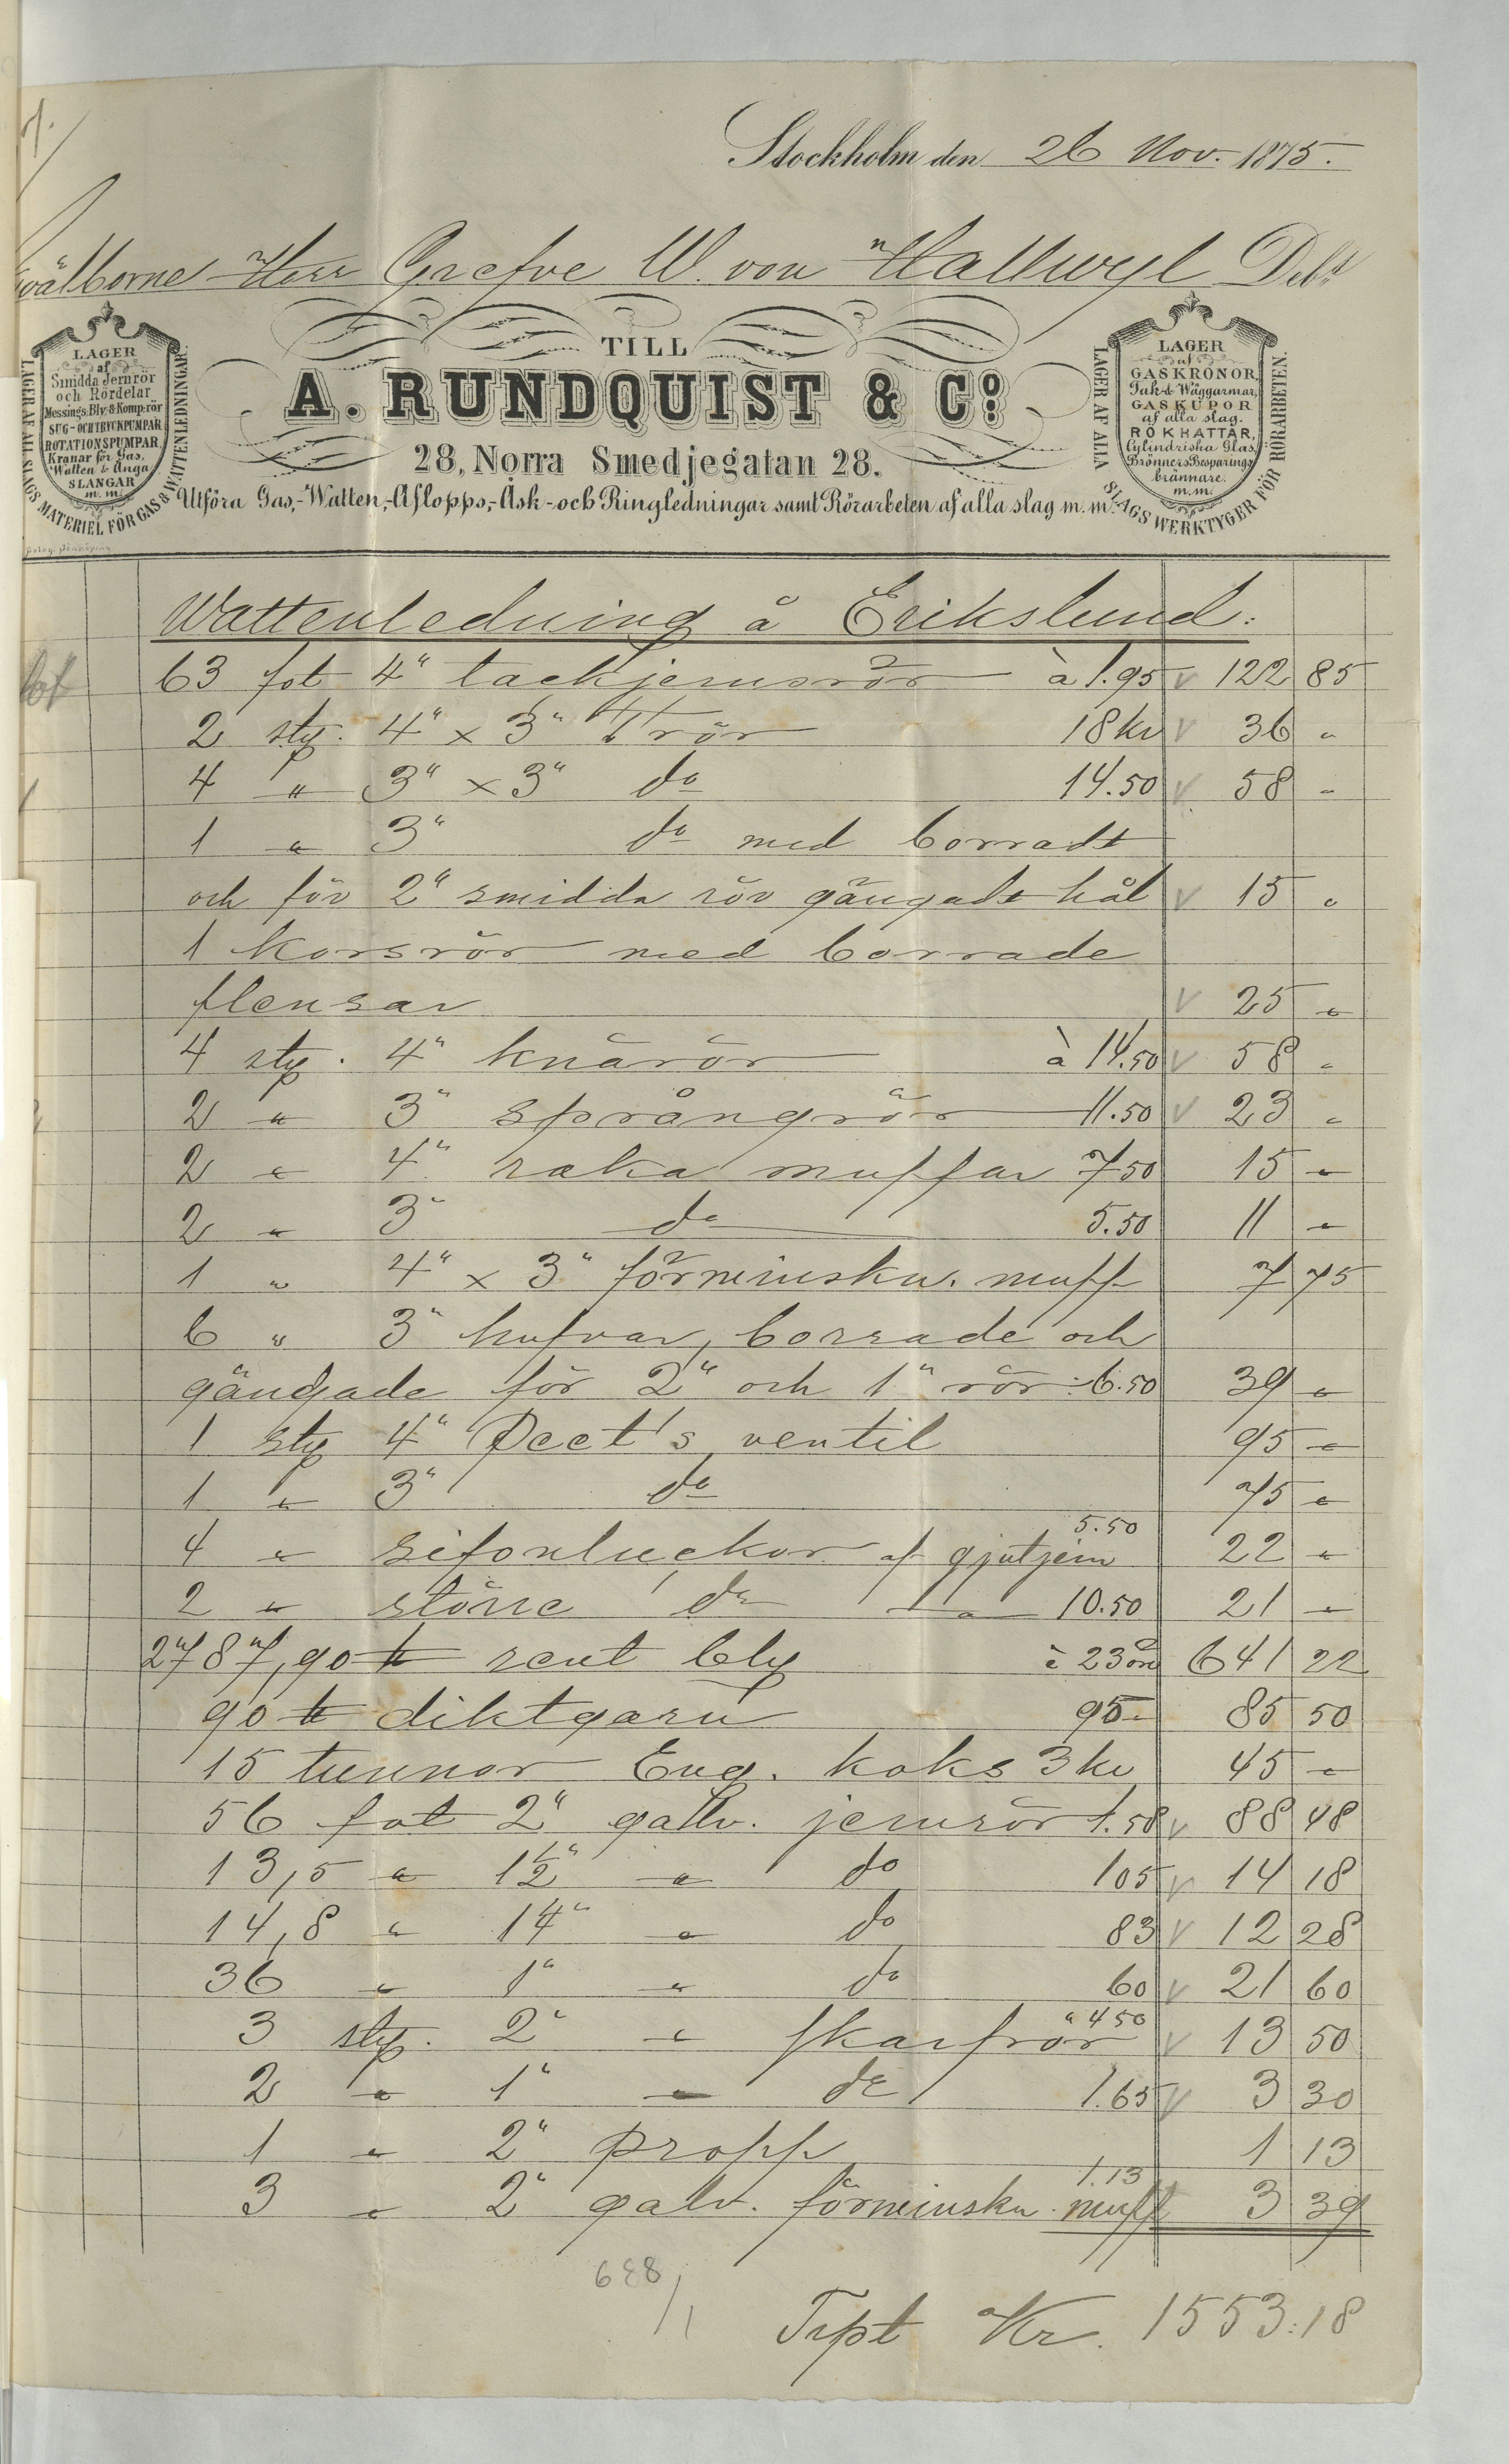 Stockholm den 26 Nov. 1875.
wälborne Herr Grefve W. von Hallwyl Debt
TILL
A. RUNDQUIST & Co.
28, Norra Smedjegatan 28.
Utföra Gas,-Watten,-Aflopps,-Ask-och Ringledningar samt Rörarbeten af alla slag m.m.
LAGER AF ALL SLAGS MATERIEL FÖR GAS & WATTENLEDNINGAR.
LAGER
af
Smidda Jernrör
och Rördelar
Messings-Bly-& Komp:rör
SUG-OCH TRYCKPUMPAR
ROTATIONSPUMPAR,
Kranar för Gas,
Watten & Ånga
SLANGAR
m.m.
LAGER AF ALLA SLAGS WERKTYGER FÖR RÖRARBETEN.
LAGER
af
GASKRONOR,
Tak-& Wäggarmar,
GASKUPOR
af alla slag.
RÖKHATTAR,
Cylindriska Glas,
Brönners Besparings
brännare.
m.m.
Wattenledning å Erikslund:
63 fot 4" tackjernsrör à 1.95 122 85
2 sty. 4" x 3" T rör 18 kr 36 "
4 " 3" x 3" do 14.50 58 "
1 " 3" do med borradt
och för 2" smidda rör gängadt hål 15 "
1 korsrör med borrade
flensar 25 "
4 sty. 4" knärör à 14.50 58 "
2 " 3" språngrör 11.50 23 "
2 " 4" raka muffar 7 50 15 "
2 " 3" do 5.50 11 "
1 " 4" x 3" förminskn. muff 7 75
6 " 3" hufvar, borrade och
gängade för 2" och 1" rör: 6.50 39 "
1 sty 4" Peet's ventil 95 "
1 " 3" do 75 "
4 " sifonluckor af gjutjern 5.50 22 "
2 " större do " 10.50 21 "
2787,90 ℔ rent bly à 23 öre 641 22
90 ℔ diktgarn 95 " 85 50
15 tunnor Eng. koks 3 kr 45 "
56 fot 2" galv. jernrör 1.58 88 48
13,5 " 1½" " do 105 14 18
14,8 " 1¼" " do 83 12 28
36 " 1" " do 60 21 60
3 sty. 2" " skarfrör " 4 50 13 50
2 " 1" " do 1.65 3 30
1 " 2" propp 1 13
3 " 2" galv. förminskn. muff 1.13 3 39
688/1
Trpt Kr. 1553:18